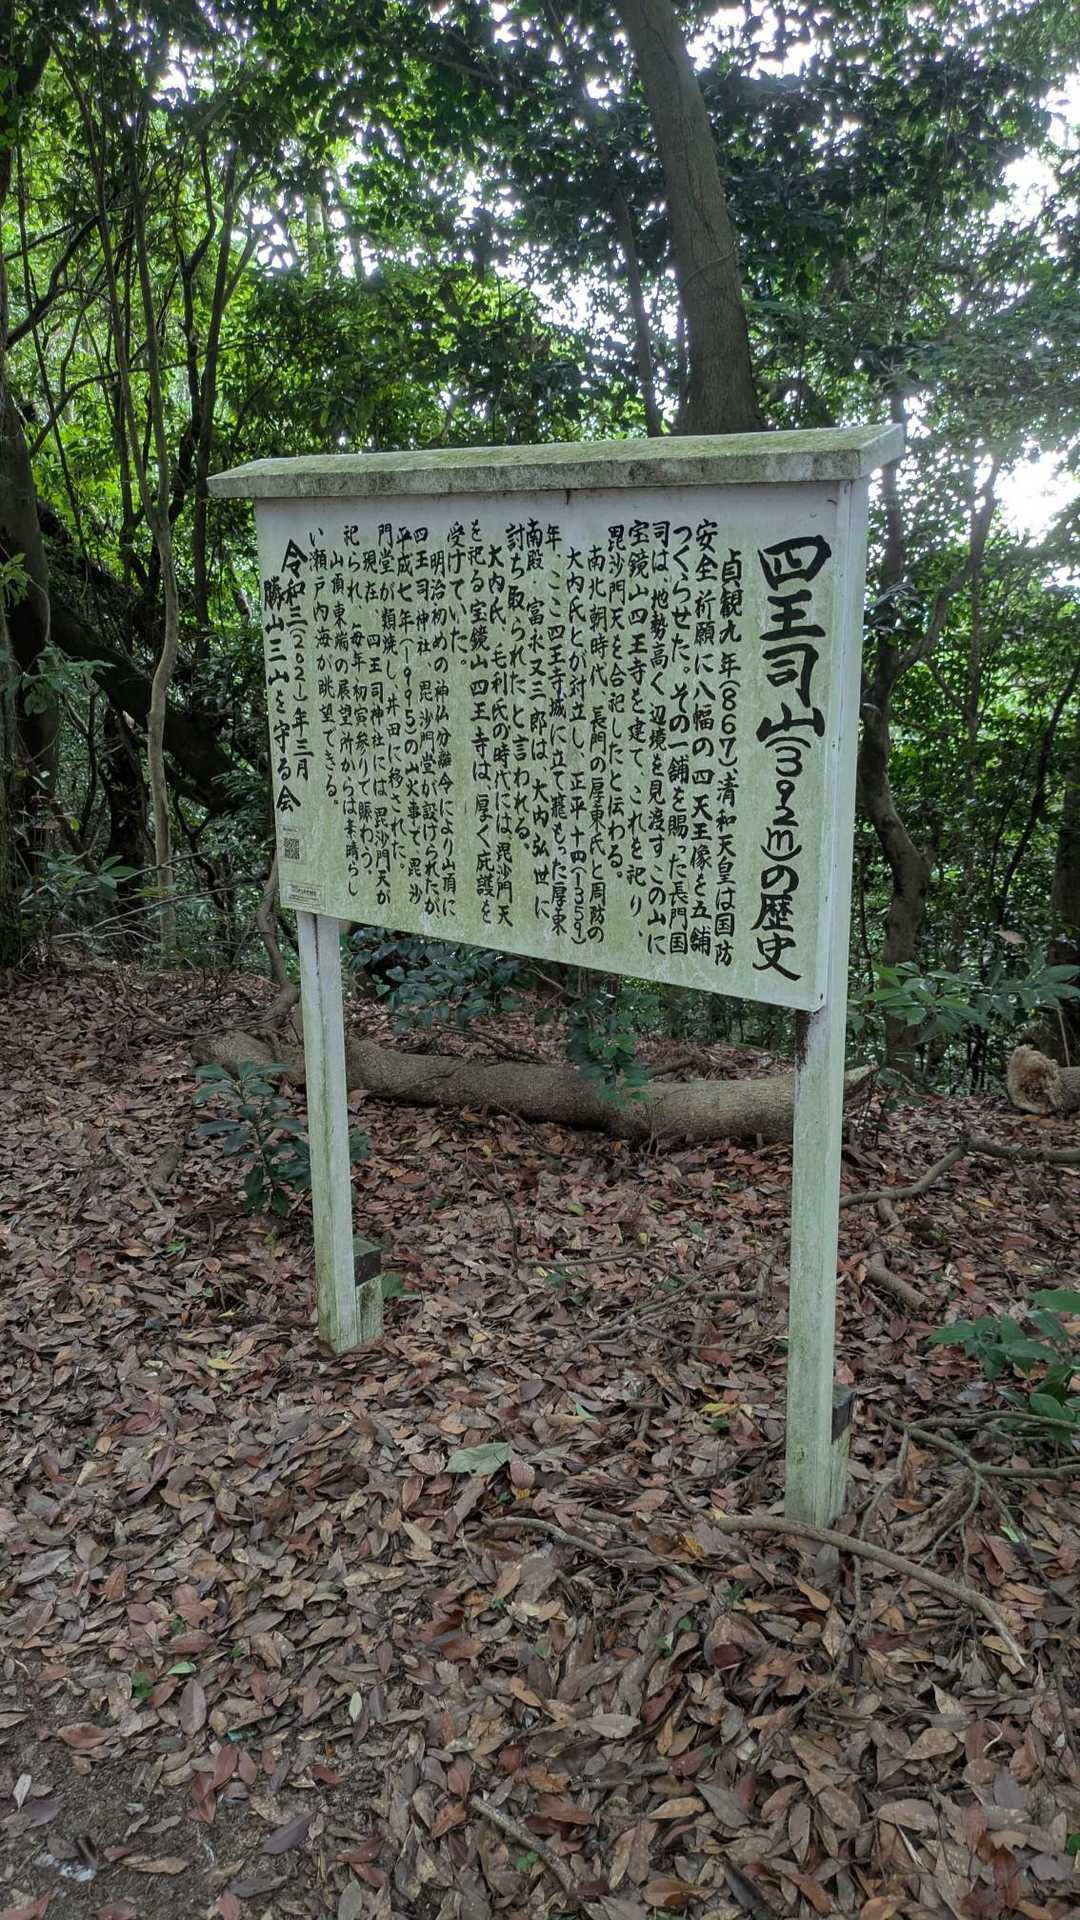 四王司山(392m)の歴史
貞観九年(867)清和天皇は国防
安全祈願に八幅の四天王像を五舗
つくらせた。その一舗を賜った長門国
司は、地勢高く辺境を見渡すこの山に
宝鏡山四王寺を建て、これを祀り、
毘沙門天を合祀したと伝わる。
南北朝時代、長門の厚東氏と周防の
大内氏とが対立し、正平十四(1359)
年、ここ四王寺城に立て籠もった厚東
南殿・富永又三郎は、大内弘世に
討ち取られたと言われる。
大内氏、毛利氏の時代には毘沙門天
を祀る宝鏡山四王寺は、厚く庇護を
受けていた。
明治初めの神仏分離令により山頂に
四王司神社、毘沙門堂が設けられたが
平成七年(1995)の山火事で毘沙
門堂が類焼し、井田に移された。
現在、四王司神社には毘沙門天が
祀られ、毎年初寅参りで賑わう。
山頂東端の展望所からは素晴らし
い瀬戸内海が眺望できる。
令和三(2021)年三月
勝山三山を守る会